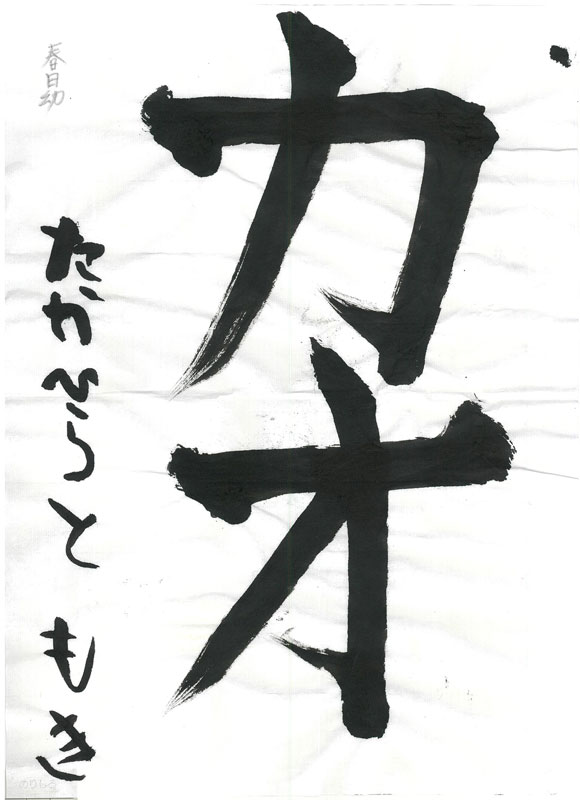 カオ
春日幼
たかひらと もき